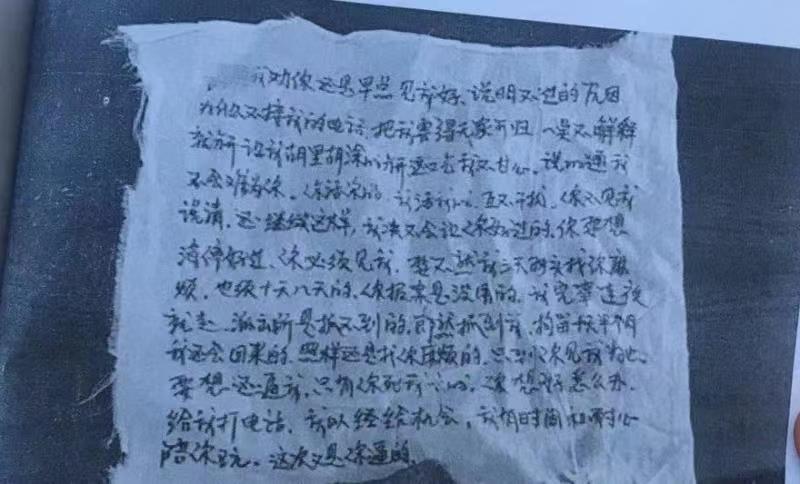 我劝你还是早点见我好。说明不过的原因
为什么不接我的电话，把我害得无家可归，
说明 我
不会难为你。你活你的，我活我的，互不干扰，你不见我
说清，还继续这样，我决不会让你好过的，你要想
清停好过，你必须见我，要不然我三天两头找你麻
烦，也须十天八天的，你报案是没用的，我完事连夜
就走，派出所是抓不到的，即然抓到我，拘留顶半个月
我还会回来的，照样还是找你麻烦的，只到你见我为止
要想 我，只有你死我 ，你想好怎么办，
给我打电话，我以经给机会，我有时间和耐心
陪你玩。这次又是你逼的。